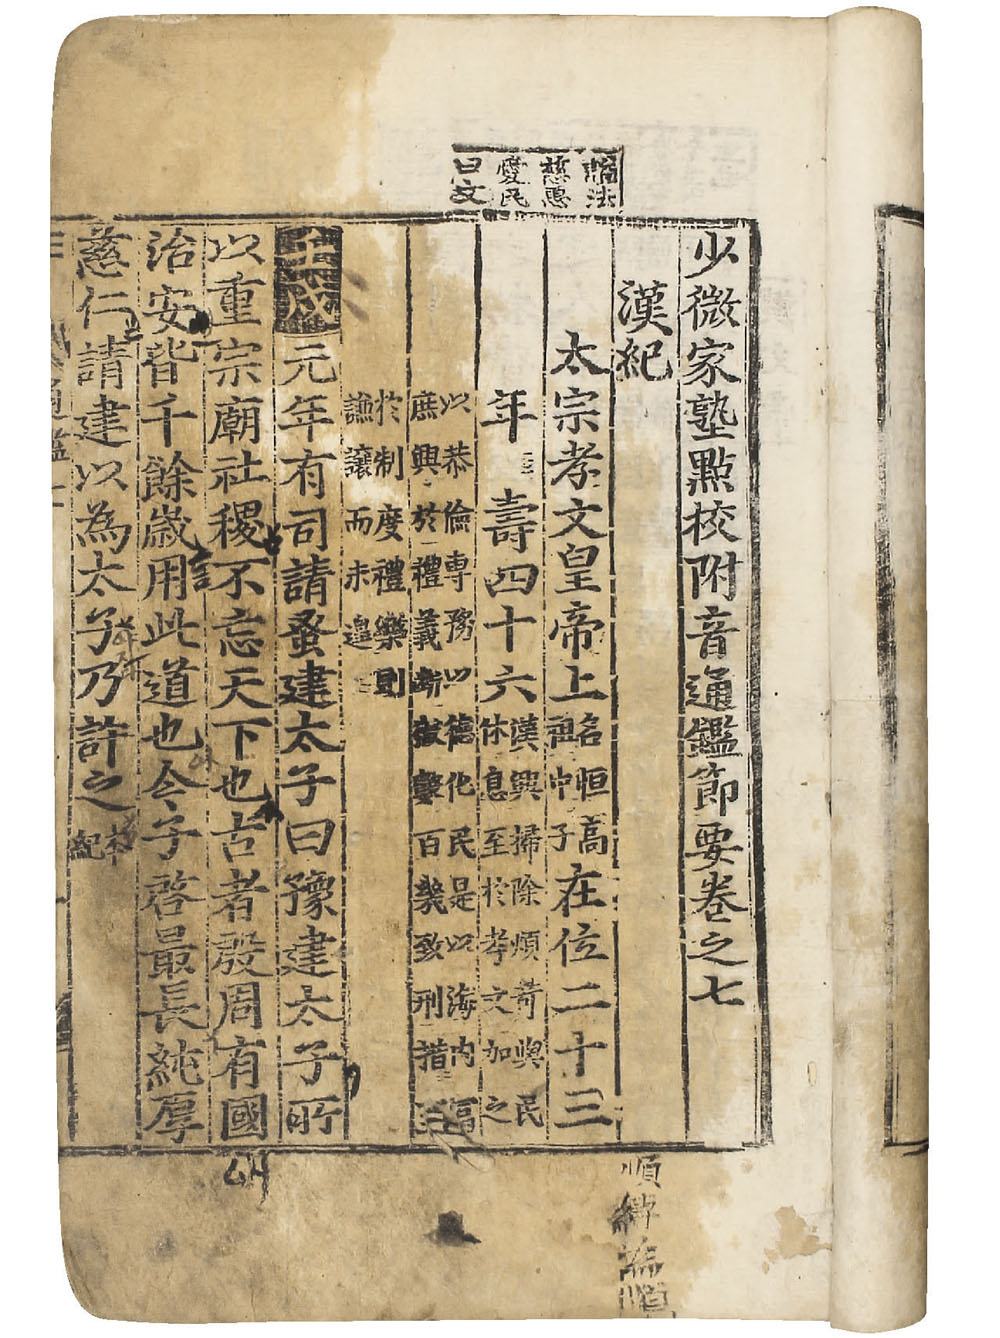 諡法
慈惠
愛民
曰文
少微家塾點校附音通鑑節要卷之七
漢紀
太宗孝文皇帝上名恒高祖中子在位二十三
年壽四十六漢興掃除煩苛與民休息至於孝文加之
以恭儉専務以德化民是以海内富庶興於禮義斷獄數百幾致刑措至
於制度禮樂則謙讓而未遑
壬戌元年有司請蚤建太子曰豫建太子所
以重宗廟社稷不忘天下也古者殷周有國
治安皆千餘歲用此道也今子啓最長純厚
慈仁請建以為太子乃許之本紀
順